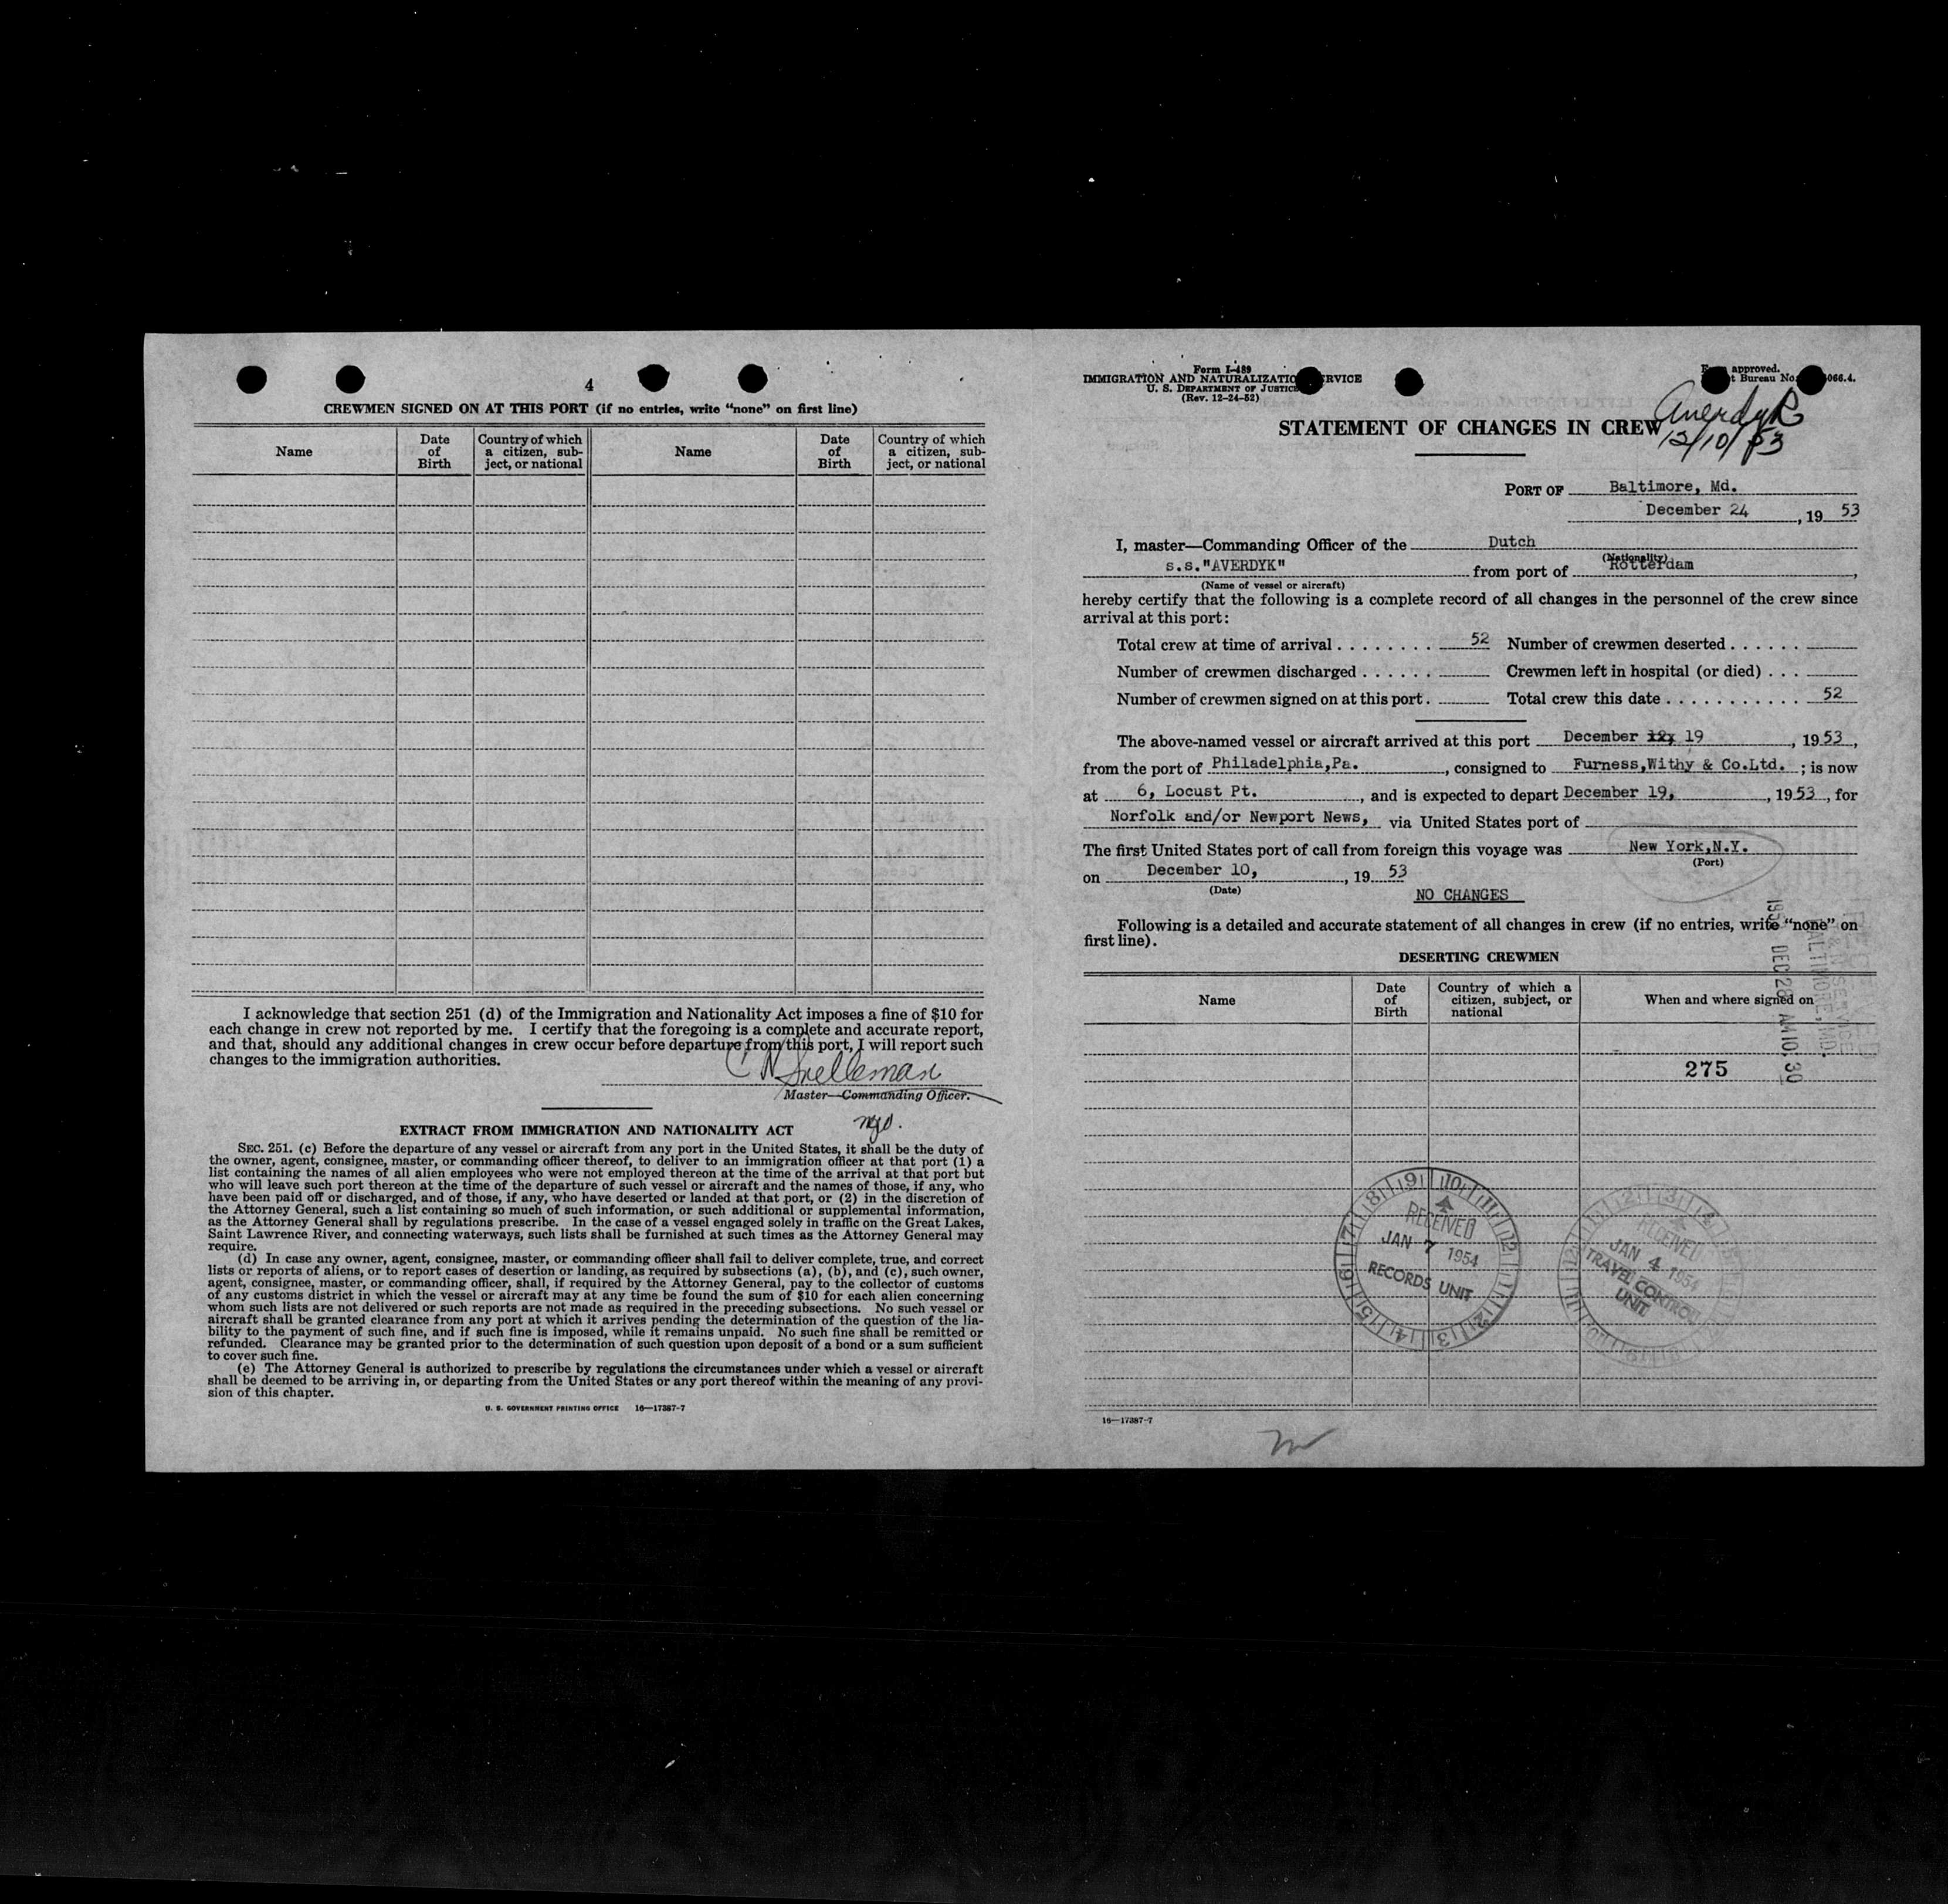 4
CREWMEN SIGNED ON AT THIS PORT (if no entries, write “none” on first line)
Name Date of Birth Country of which a citizen, subject, or national Name Date of Birth Country of which a citizen, subject, or national
I acknowledge that section 251 (d) of the Immigration and Nationality Act imposes a fine of $10 for
each change in crew not reported by me. I certify that the foregoing is a complete and accurate report,
and that, should any additional changes in crew occur before departure from this port, I will report such
changes to the immigration authorities.
Master—Commanding Officer.
EXTRACT FROM IMMIGRATION AND NATIONALITY ACT
SEC. 251. (c) Before the departure of any vessel or aircraft from any port in the United States, it shall be the duty of
the owner, agent, consignee, master, or commanding officer thereof, to deliver to an immigration officer at that port (1) a
list containing the names of all alien employees who were not employed thereon at the time of the arrival at that port but
who will leave such port thereon at the time of the departure of such vessel or aircraft and the names of those, if any, who
have been paid off or discharged, and of those, if any, who have deserted or landed at that port, or (2) in the discretion of
the Attorney General, such a list containing so much of such information, or such additional or supplemental information,
as the Attorney General shall by regulations prescribe. In the case of a vessel engaged solely in traffic on the Great Lakes,
Saint Lawrence River, and connecting waterways, such lists shall be furnished at such times as the Attorney General may
require.
(d) In case any owner, agent, consignee, master, or commanding officer shall fail to deliver complete, true, and correct
lists or reports of aliens, or to report cases of desertion or landing, as required by subsections (a), (b), and (c), such owner,
agent, consignee, master, or commanding officer, shall, if required by the Attorney General, pay to the collector of customs
of any customs district in which the vessel or aircraft may at any time be found the sum of $10 for each alien concerning
whom such lists are not delivered or such reports are not made as required in the preceding subsections. No such vessel or
aircraft shall be granted clearance from any port at which it arrives pending the determination of the question of the lia-
bility to the payment of such fine, and if such fine is imposed, while it remains unpaid. No such fine shall be remitted or
refunded. Clearance may be granted prior to the determination of such question upon deposit of a bond or a sum sufficient
to cover such fine.
(e) The Attorney General is authorized to prescribe by regulations the circumstances under which a vessel or aircraft
shall be deemed to be arriving in, or departing from the United States or any port thereof within the meaning of any provi-
sion of this chapter.
U. S. GOVERNMENT PRINTING OFFICE 16—17387-7
Form I-489
IMMIGRATION AND NATURALIZATIO RVICE
U. S. DEPARTMENT OF JUSTICE
(Rev. 12-24-52)
approved.
t Bureau No. 066.4.
Averdyk
12/10/53
STATEMENT OF CHANGES IN CREW
PORT OF Baltimore, Md.
December 24, 19 53
I, master—Commanding Officer of the Dutch
(Nationality)
s.s."AVERDYK" from port of Rotterdam,
(Name of vessel or aircraft)
hereby certify that the following is a complete record of all changes in the personnel of the crew since
arrival at this port:
Total crew at time of arrival . . . . . . . . 52 Number of crewmen deserted . . . . . .
Number of crewmen discharged . . . . . . Crewmen left in hospital (or died) . . .
Number of crewmen signed on at this port. Total crew this date . . . . . . . . . . . 52
The above-named vessel or aircraft arrived at this port December 12x 19, 1953,
from the port of Philadelphia,Pa., consigned to Furness,Withy & Co.Ltd. ; is now
at 6, Locust Pt., and is expected to depart December 19,, 1953, for
Norfolk and/or Newport News, via United States port of
The first United States port of call from foreign this voyage was New York,N.Y.
(Port)
on December 10,, 19 53
(Date)
NO CHANGES
Following is a detailed and accurate statement of all changes in crew (if no entries, write “none” on
first line).
DESERTING CREWMEN
Name Date of Birth Country of which a citizen, subject, or national When and where signed on
BALTIMORE, MD.
DEC 28 AM 10 30
275
RECEIVED
JAN 7 1954
RECORDS UNIT
RECEIVED
JAN 4 1954
TRAVEL CONTROL
UNIT
16—17387-7